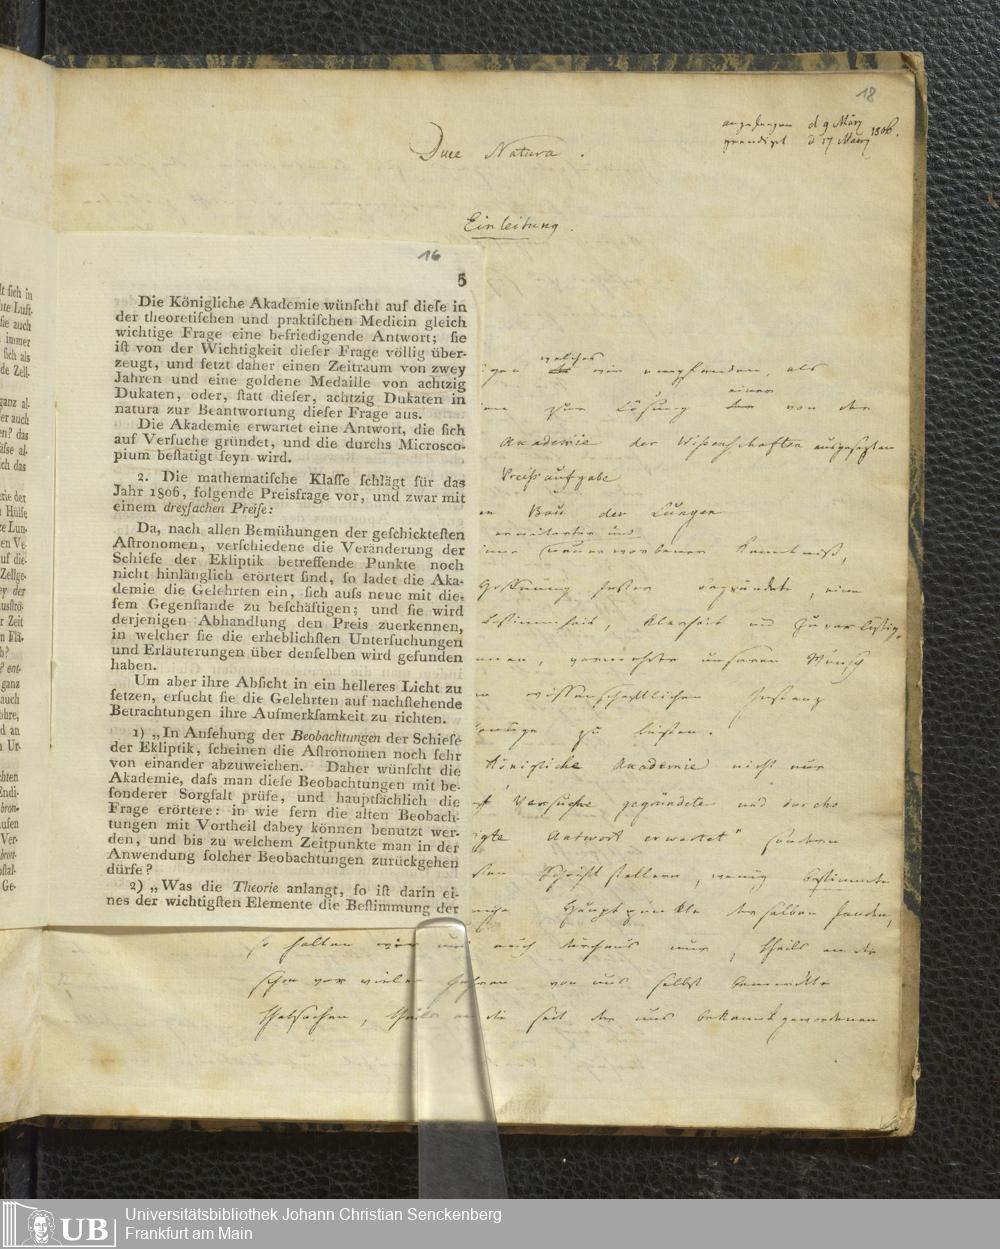 18
angefangen d 9 März
geendigt d 17 März 1806.
Duce Natura.
Einleitung.
16
5
Die Königliche Akademie wünſcht auf dieſe in
der theoretiſchen und praktiſchen Medicin gleich
wichtige Frage eine befriedigende Antwort; ſie
iſt von der Wichtigkeit dieſer Frage völlig über-
zeugt, und ſetzt daher einen Zeitraum von zwey
Jahren und eine goldene Medaille von achtzig
Dukaten, oder, ſtatt dieſer, achtzig Dukaten in
natura zur Beantwortung dieſer Frage aus.
Die Akademie erwartet eine Antwort, die ſich
auf Verſuche gründet, und die durchs Microsco-
pium beſtatigt ſeyn wird.
2. Die mathematiſche Klaſſe ſchlägt für das
Jahr 1806, folgende Preisfrage vor, und zwar mit
einem dreyfachen Preiſe:
Da, nach allen Bemühungen der geſchickteſten
Aſtronomen, verſchiedene die Veränderung der
Schiefe der Ekliptik betreffende Punkte noch
nicht hinlänglich erörtert ſind, ſo ladet die Aka-
demie die Gelehrten ein, ſich aufs neue mit die-
ſem Gegenſtande zu beſchäftigen; und ſie wird
derjenigen Abhandlung den Preis zuerkennen,
in welcher ſie die erheblichſten Unterſuchungen
und Erläuterungen über denſelben wird gefunden
haben.
Um aber ihre Abſicht in ein helleres Licht zu
ſetzen, erſucht ſie die Gelehrten auf nachſtehende
Betrachtungen ihre Aufmerkſamkeit zu richten.
1) „In Anſehung der Beobachtungen der Schiefe
der Ekliptik, ſcheinen die Aſtronomen noch ſehr
von einander abzuweichen. Daher wünſcht die
Akademie, daſs man dieſe Beobachtungen mit be-
ſonderer Sorgfalt prüfe, und hauptſächlich die
Frage erörtere: in wie fern die alten Beobach-
tungen mit Vortheil dabey können benutzt wer-
den, und bis zu welchem Zeitpunkte man in der
Anwendung ſolcher Beobachtungen zurückgehen
dürfe?
2) „Was die Theorie anlangt, ſo iſt darin ei-
nes der wichtigſten Elemente die Beſtimmung der
welches
wir empfanden, als
einer
zur Lösung von der
Akademie der Wissenschaften ausgesezten
Preißaufgabe
Bau der Lungen
erweiterter und
neuerworbener Kenntniß,
Hoffnung fester begründete, eine
Bestimmtheit, Klarheit und Zuverläßig-
vermehrte unseren Wunsch
wissenschaftlichen
zu leisten.
Königliche Akademie nicht nur
Versuche gegründete und durchs
Antwort erwartet" sondern
Schriftstellern, wenig bestimmte
Hauptpunkte derselben fanden,
so halten wir uns auch durchaus nur, theils an die
schon vor vielen Jahren von uns selbst bemerkte
Thatsachen, theils an die seit der uns bekannt gewordenen
UB
Universitätsbibliothek Johann Christian Senckenberg
Frankfurt am Main